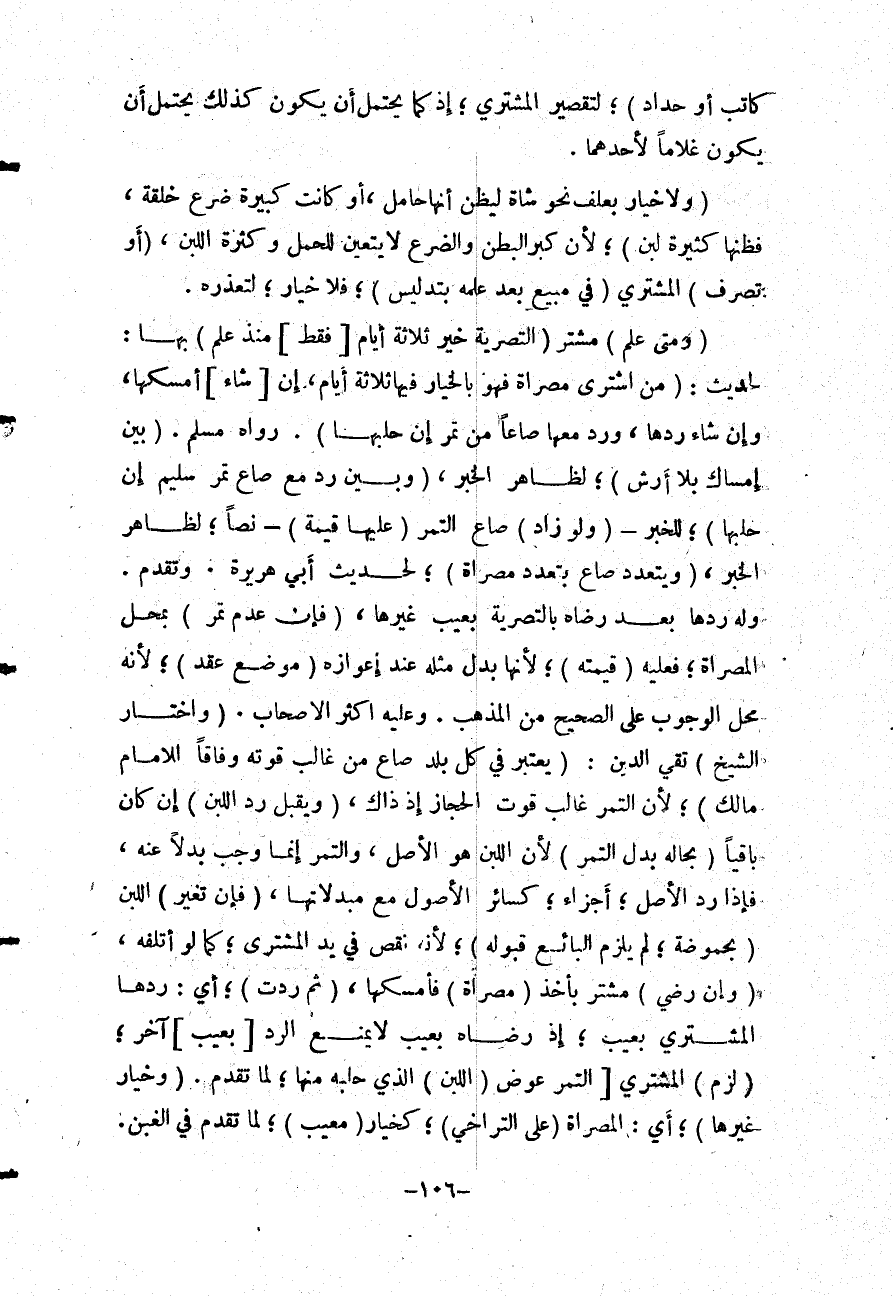 كاتب أو حداد ) ؛ لتقصير المشتري ؛ إذ كما يحتمل أن يكون كذلك يحتمل أن
يكون غلاماً لأحدهما .
( ولا خيار بعلف نحو شاة ليظن أنها حامل ، أو كانت كبيرة ضرع خلقة ،
فظنها كثيرة لبن ) ؛ لأن كبر البطن والضرع لا يتعين للحمل وكثرة اللبن ، ( أو
تصرف ) المشتري ( في مبيع بعد علمه بتدليس ) ؛ فلا خيار ؛ لتعذره .
( ومتى علم ) مشتر ( التصرية خير ثلاثة أيام [ فقط ] منذ علم ) بهـا :
لحديث : ( من اشترى مصراة فهو بالخيار فيها ثلاثة أيام ، إن [ شاء ] أمسكها ،
وإن شاء ردها ، ورد معها صاعاً من تمر إن حلبهـا ) . رواه مسلم . ( بين
إمساك بلا أرش ) ؛ لظـاهر الخبر ، ( وبـين رد مع صاع تمر سليم إن
حلبها ) ؛ للخبر – ( ولو زاد ) صاع التمر ( عليهـا قيمة ) – نصاً ؛ لظـاهر
الخبر ، ( ويتعدد صاع بتعدد مصراة ) ؛ لحـديث أبي هريرة . وتقدم .
وله ردها بعـد رضاه بالتصرية بعيب غيرها ، ( فإن عدم تمر ) بمحل
المصراة ؛ فعليه ( قيمته ) ؛ لأنها بدل مثله عند إعوازه ( موضـع عقد ) ؛ لأنه
محل الوجوب على الصحيح من المذهب . وعليه اكثر الاصحاب . ( واختـار
الشيخ ) تقي الدين : ( يعتبر في كل بلد صاع من غالب قوته وفاقاً للامـام
مالك ) ؛ لأن التمر غالب قوت الحجاز إذ ذاك ، ( ويقبل رد اللبن ) إن كان
باقياً ( بحاله بدل التمر ) لأن اللبن هو الأصل ، والتمر إنمـا وجب بدلاً عنه ،
فإذا رد الأصل ؛ أجزاء ؛ كسائر الأصول مع مبدلاتهـا ، ( فإن تغير ) اللبن
( بحموضة ؛ لم يلزم البائـع قبوله ) ؛ لأنه نقص في يد المشترى ؛ كما لو أتلفه ،
( وإن رضي ) مشتر بأخذ ( مصراة ) فأمسكها ، ( ثم ردت ) ؛ أي : ردهـا
المشـتري بعيب ؛ إذ رضـاه بعيب لا يمنـع الرد [ بعيب ] آخر ؛
( لزم ) المشتري [ التمر عوض ( اللبن ) الذي حلبه منها ؛ لما تقدم . ( وخيار
غيرها ) ؛ أي : المصراة ( على التراخي ) ؛ كخيار ( معيب ) ؛ لما تقدم في الغبن .
–١٠٦–